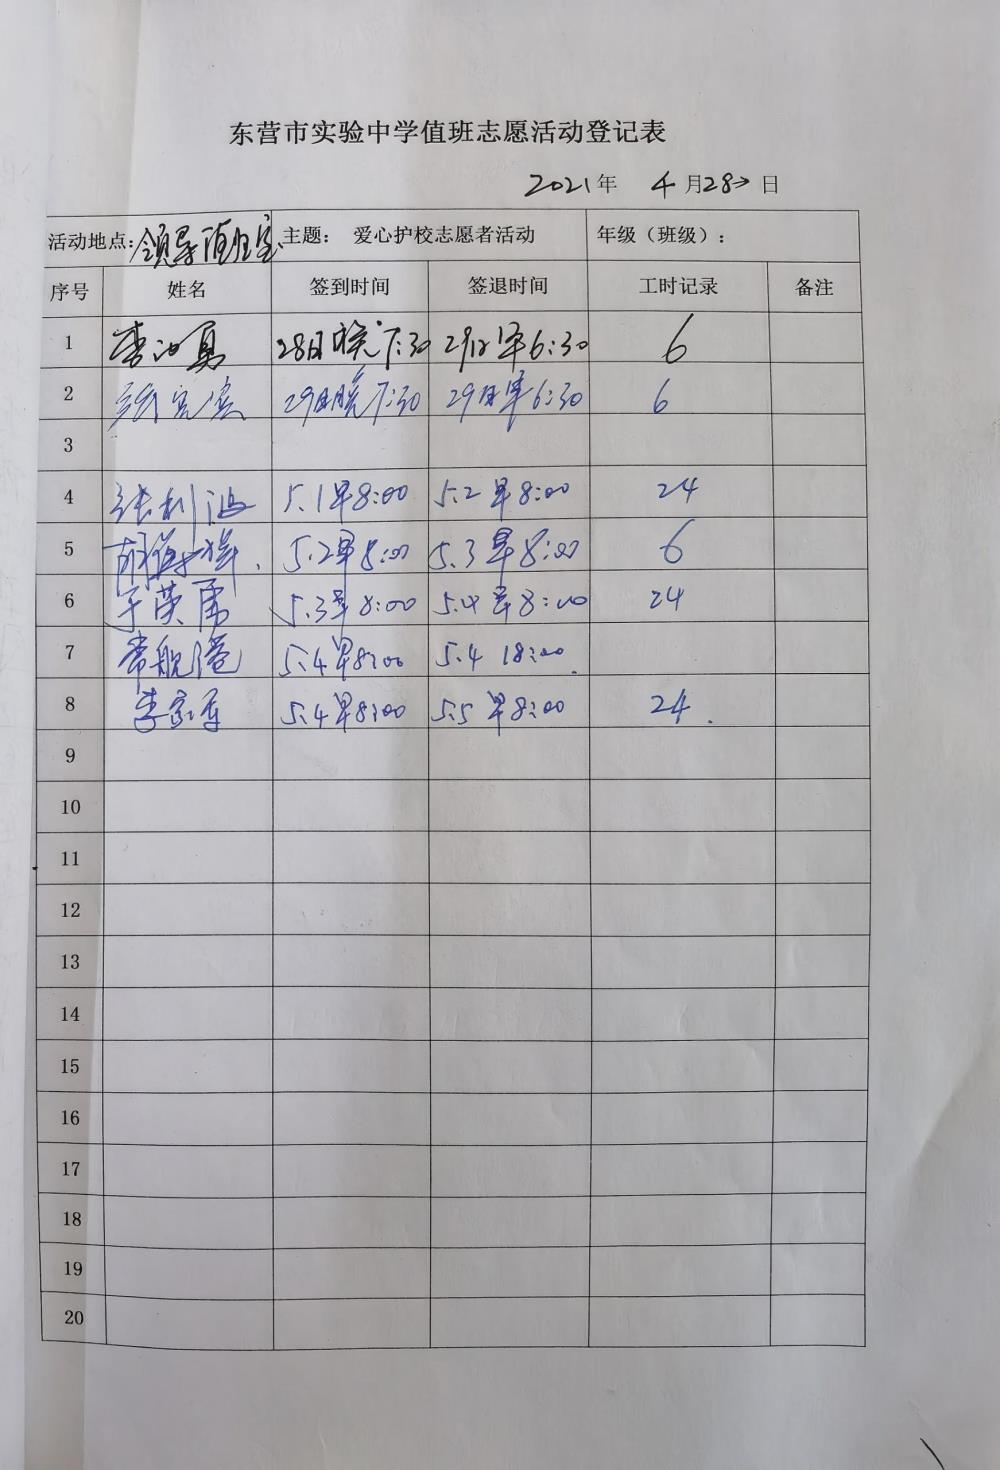 东营市实验中学值班志愿活动登记表
2021年 4月28日
活动地点：领导值班室 主题： 爱心护校志愿者活动 年级（班级）：
序号 姓名 签到时间 签退时间 工时记录 备注
1 李 勇 28日晚7:30 29日早6:30 6
2 张 滨 29日晚7:30 29日早6:30 6
3
4 张利 5.1早8:00 5.2早8:00 24
5 胡 5.2早8:00 5.3早8:00 6
6 于英 5.3早8:00 5.4早8:00 24
7 常 5.4早8:00 5.4 18:00.
8 李家军 5.4早8:00 5.5早8:00 24.
9
10
11
12
13
14
15
16
17
18
19
20